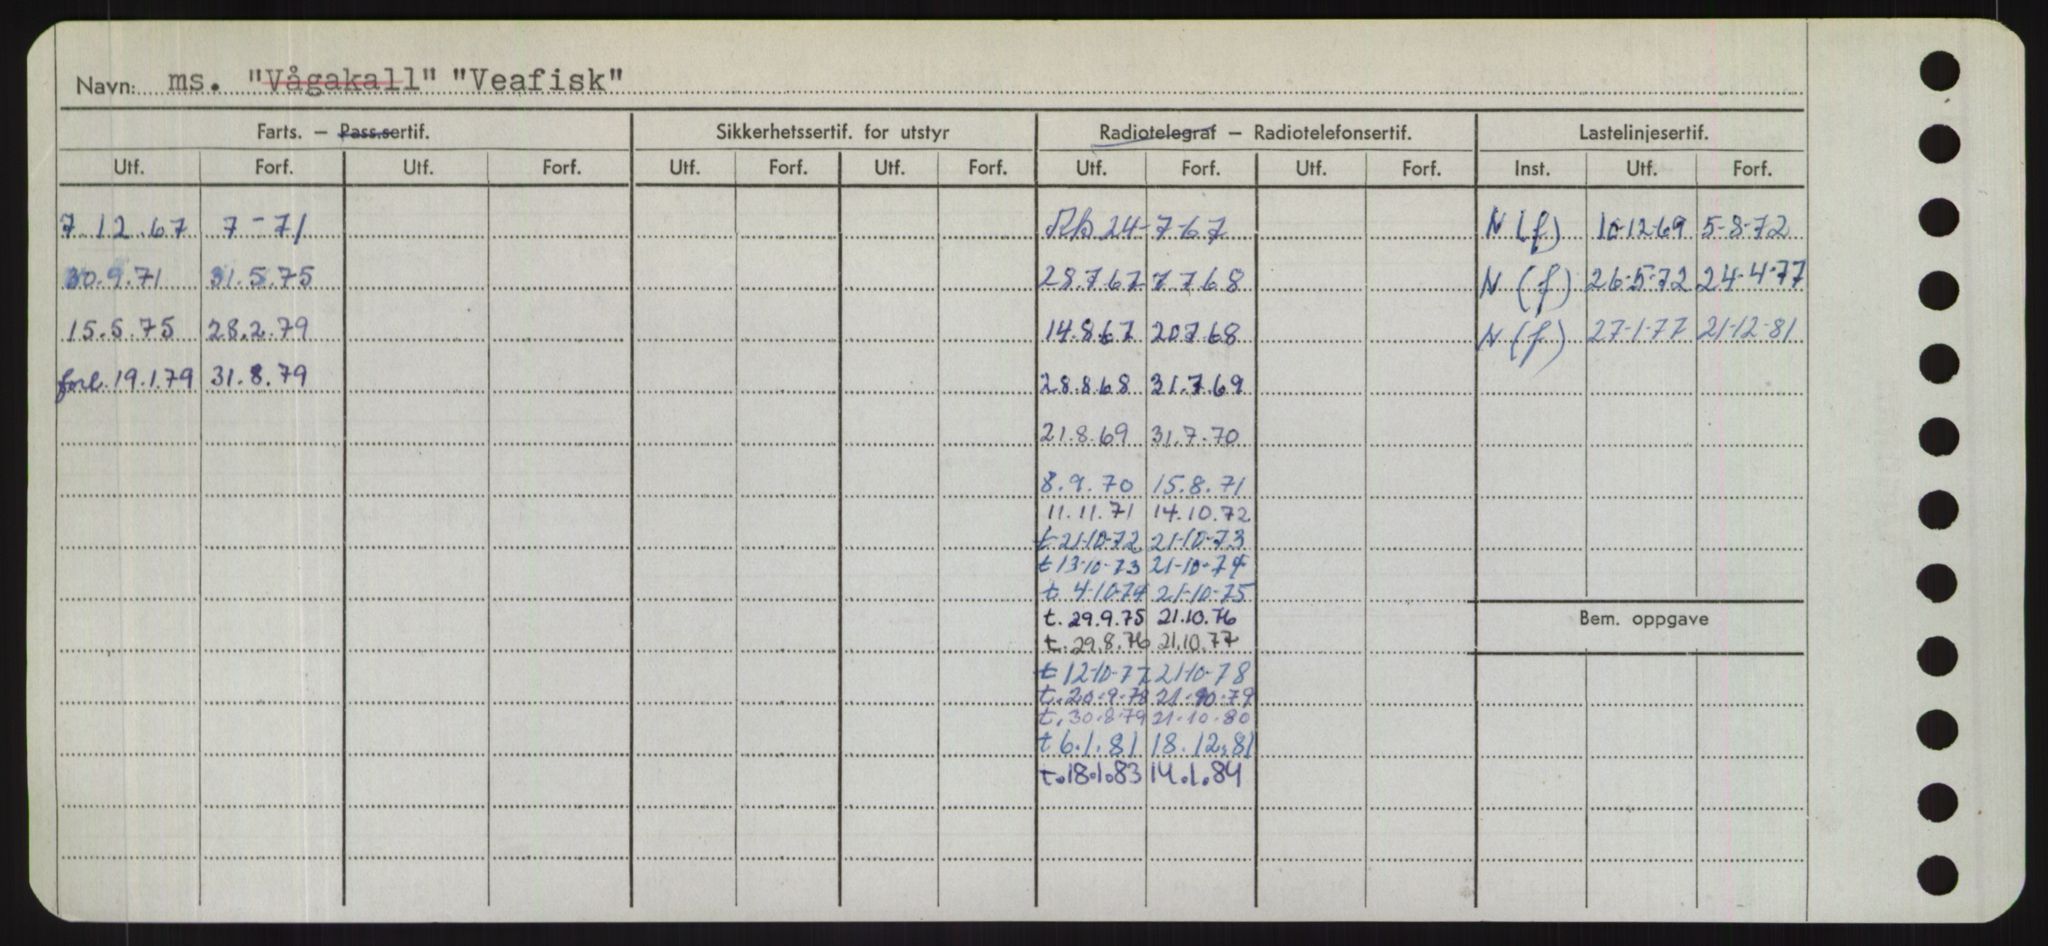 Navn: ms. "Vågakall" "Veafisk"
Farts. — Pass.sertif. Sikkerhetssertif. for utstyr Radiotelegraf — Radiotelefonsertif. Lastelinjesertif.
Utf. Forf. Utf. Forf. Utf. Forf. Utf. Forf. Utf. Forf. Utf. Forf. Inst. Utf. Forf.
7.12.67 7-71 24-7-67 N (f) 10-12-69 5-8-72
30.9.71 31.5.75 28.7.67 7.7.68 N (f) 26-5-72 24-4-77
15.5.75 28.2.79 14.8.67 20.7.68 N (f) 27-1-77 21-12-81
forl. 19.1.79 31.8.79 28.8.68 31.7.69
21.8.69 31.7.70
8.9.70 15.8.71
11.11.71 14.10.72
t. 21-10-72 21-10-73
t 13-10-73 21-10-74
t. 4-10-74 21-10-75
t. 29.9.75 21.10.76
t. 29.8.76 21.10.77
Bem. oppgave
t 12-10-77 21-10-78
t. 20-9-78 21-10-79
t. 30-8-79 21-10-80
t 6.1.81 18.12.81
t. 18.1.83 14.1.84